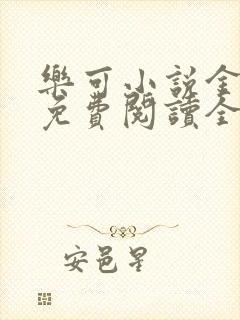 樂可小说全
免費閱讀全
安邑星